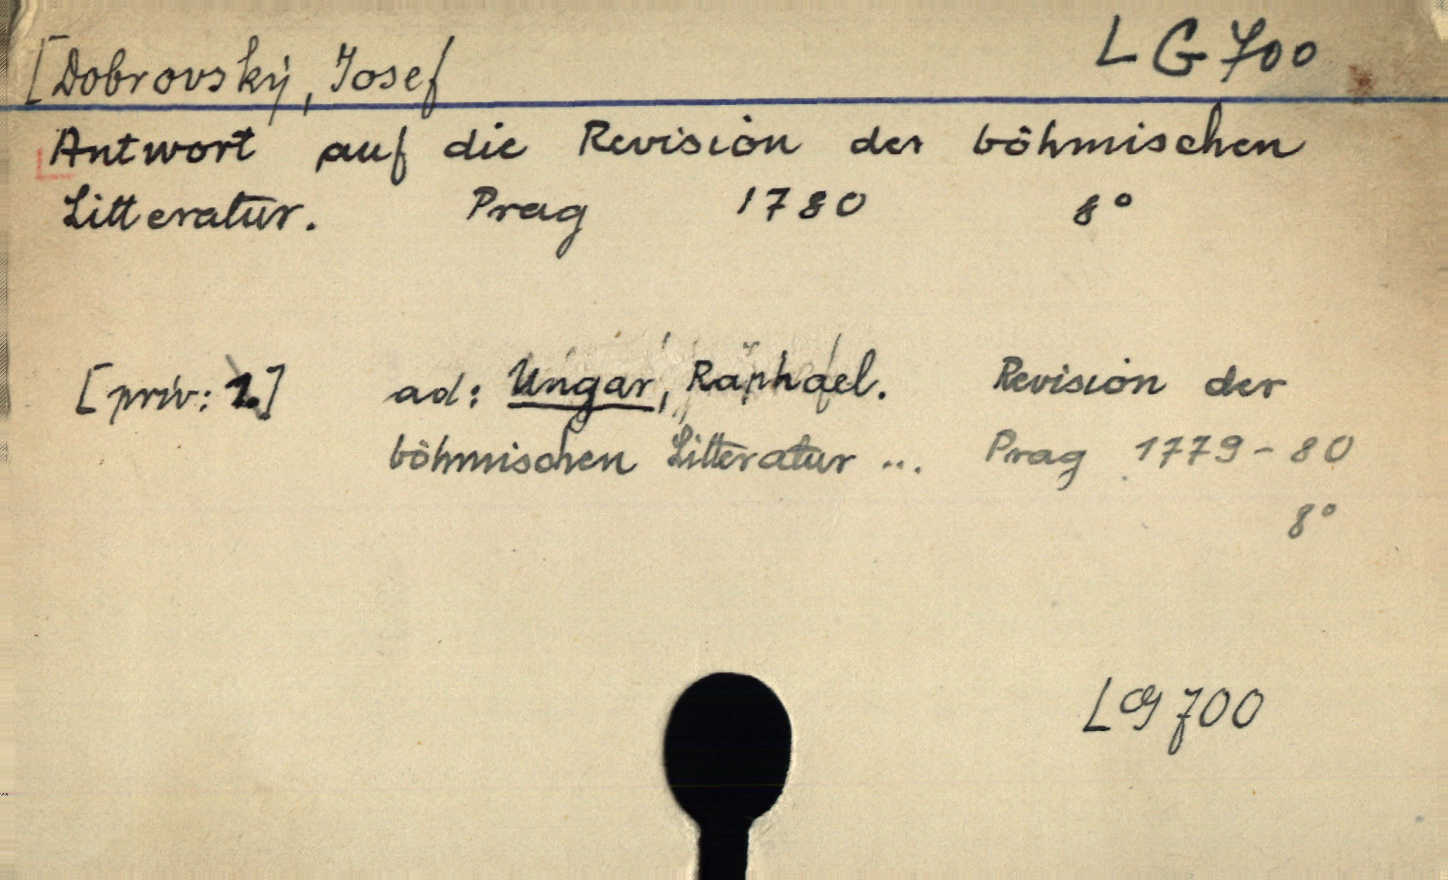 [Dobrovský, Josef
LG 700
Antwort auf die Revision der böhmischen
Litteratur. Prag 1780 8°
[priv: 1.] ad: Ungar, Raphael. Revision der
böhmischen Litteratur ... Prag 1779-80
8°
LG 700